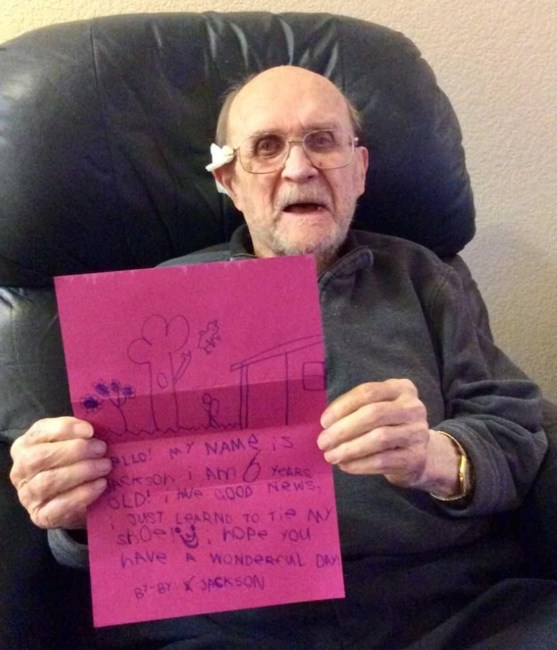 HELLO! MY NAME iS
JACKSON i Am 6 YEARS
OLD! i HAVE GOOD NEWS.
i JUST LEARND TO Tie MY
SHOE! i HOPE YOU
HAVE A WONDERFUL DAY
BY-BY JACKSON